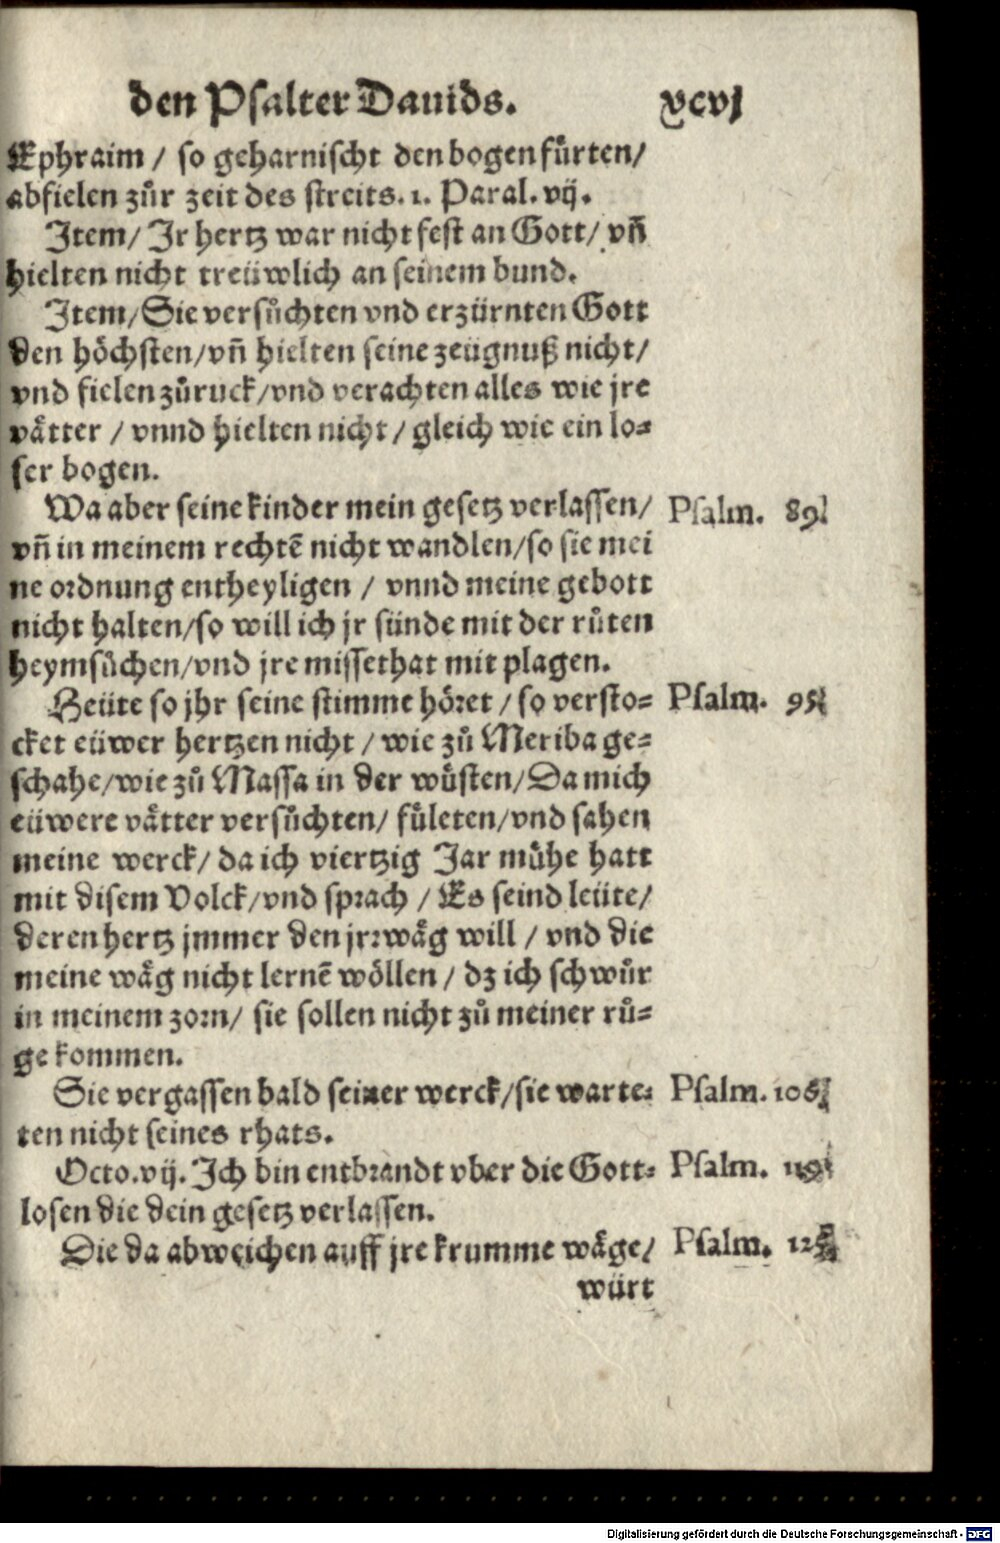 den Psalter Dauids. xcvj
Ephraim / so geharnischt den bogen fůrten/
abfielen zůr zeit des streits. 1. Paral. vij.
Item/ Ir hertz war nicht fest an Gott/ vñ
hielten nicht treüwlich an seinem bund.
Item/ Sie versůchten vnd erzürnten Gott
den höchsten/ vñ hielten seine zeügnuß nicht/
vnd fielen zůruck/ vnd verachten alles wie jre
vätter / vnnd hielten nicht / gleich wie ein lo=
ser bogen.
Wa aber seine kinder mein gesetz verlassen/ Psalm. 89.
vñ in meinem rechtē nicht wandlen/ so sie mei
ne ordnung entheyligen / vnnd meine gebott
nicht halten/ so will ich jr sünde mit der růten
heymsůchen/ vnd jre missethat mit plagen.
Heüte so jhr seine stimme höret / so versto= Psalm. 95.
cket eüwer hertzen nicht / wie zů Meriba ge=
schahe/ wie zů Massa in der wůsten/ Da mich
eüwere vätter versůchten/ fůleten/ vnd sahen
meine werck/ da ich viertzig Jar můhe hatt
mit disem Volck/ vnd sprach / Es seind leüte/
deren hertz jmmer den jrrwäg will / vnd die
meine wäg nicht lernē wöllen / dz ich schwůr
in meinem zorn/ sie sollen nicht zů meiner rů=
ge kommen.
Sie vergassen bald seiner werck/ sie warte= Psalm. 106.
ten nicht seines rhats.
Octo. vij. Ich bin entbrandt vber die Gott= Psalm. 119.
losen die dein gesetz verlassen.
Die da abweichen auff jre krumme wäge/ Psalm.
würt
Digitalisierung gefördert durch die Deutsche Forschungsgemeinschaft - DFG